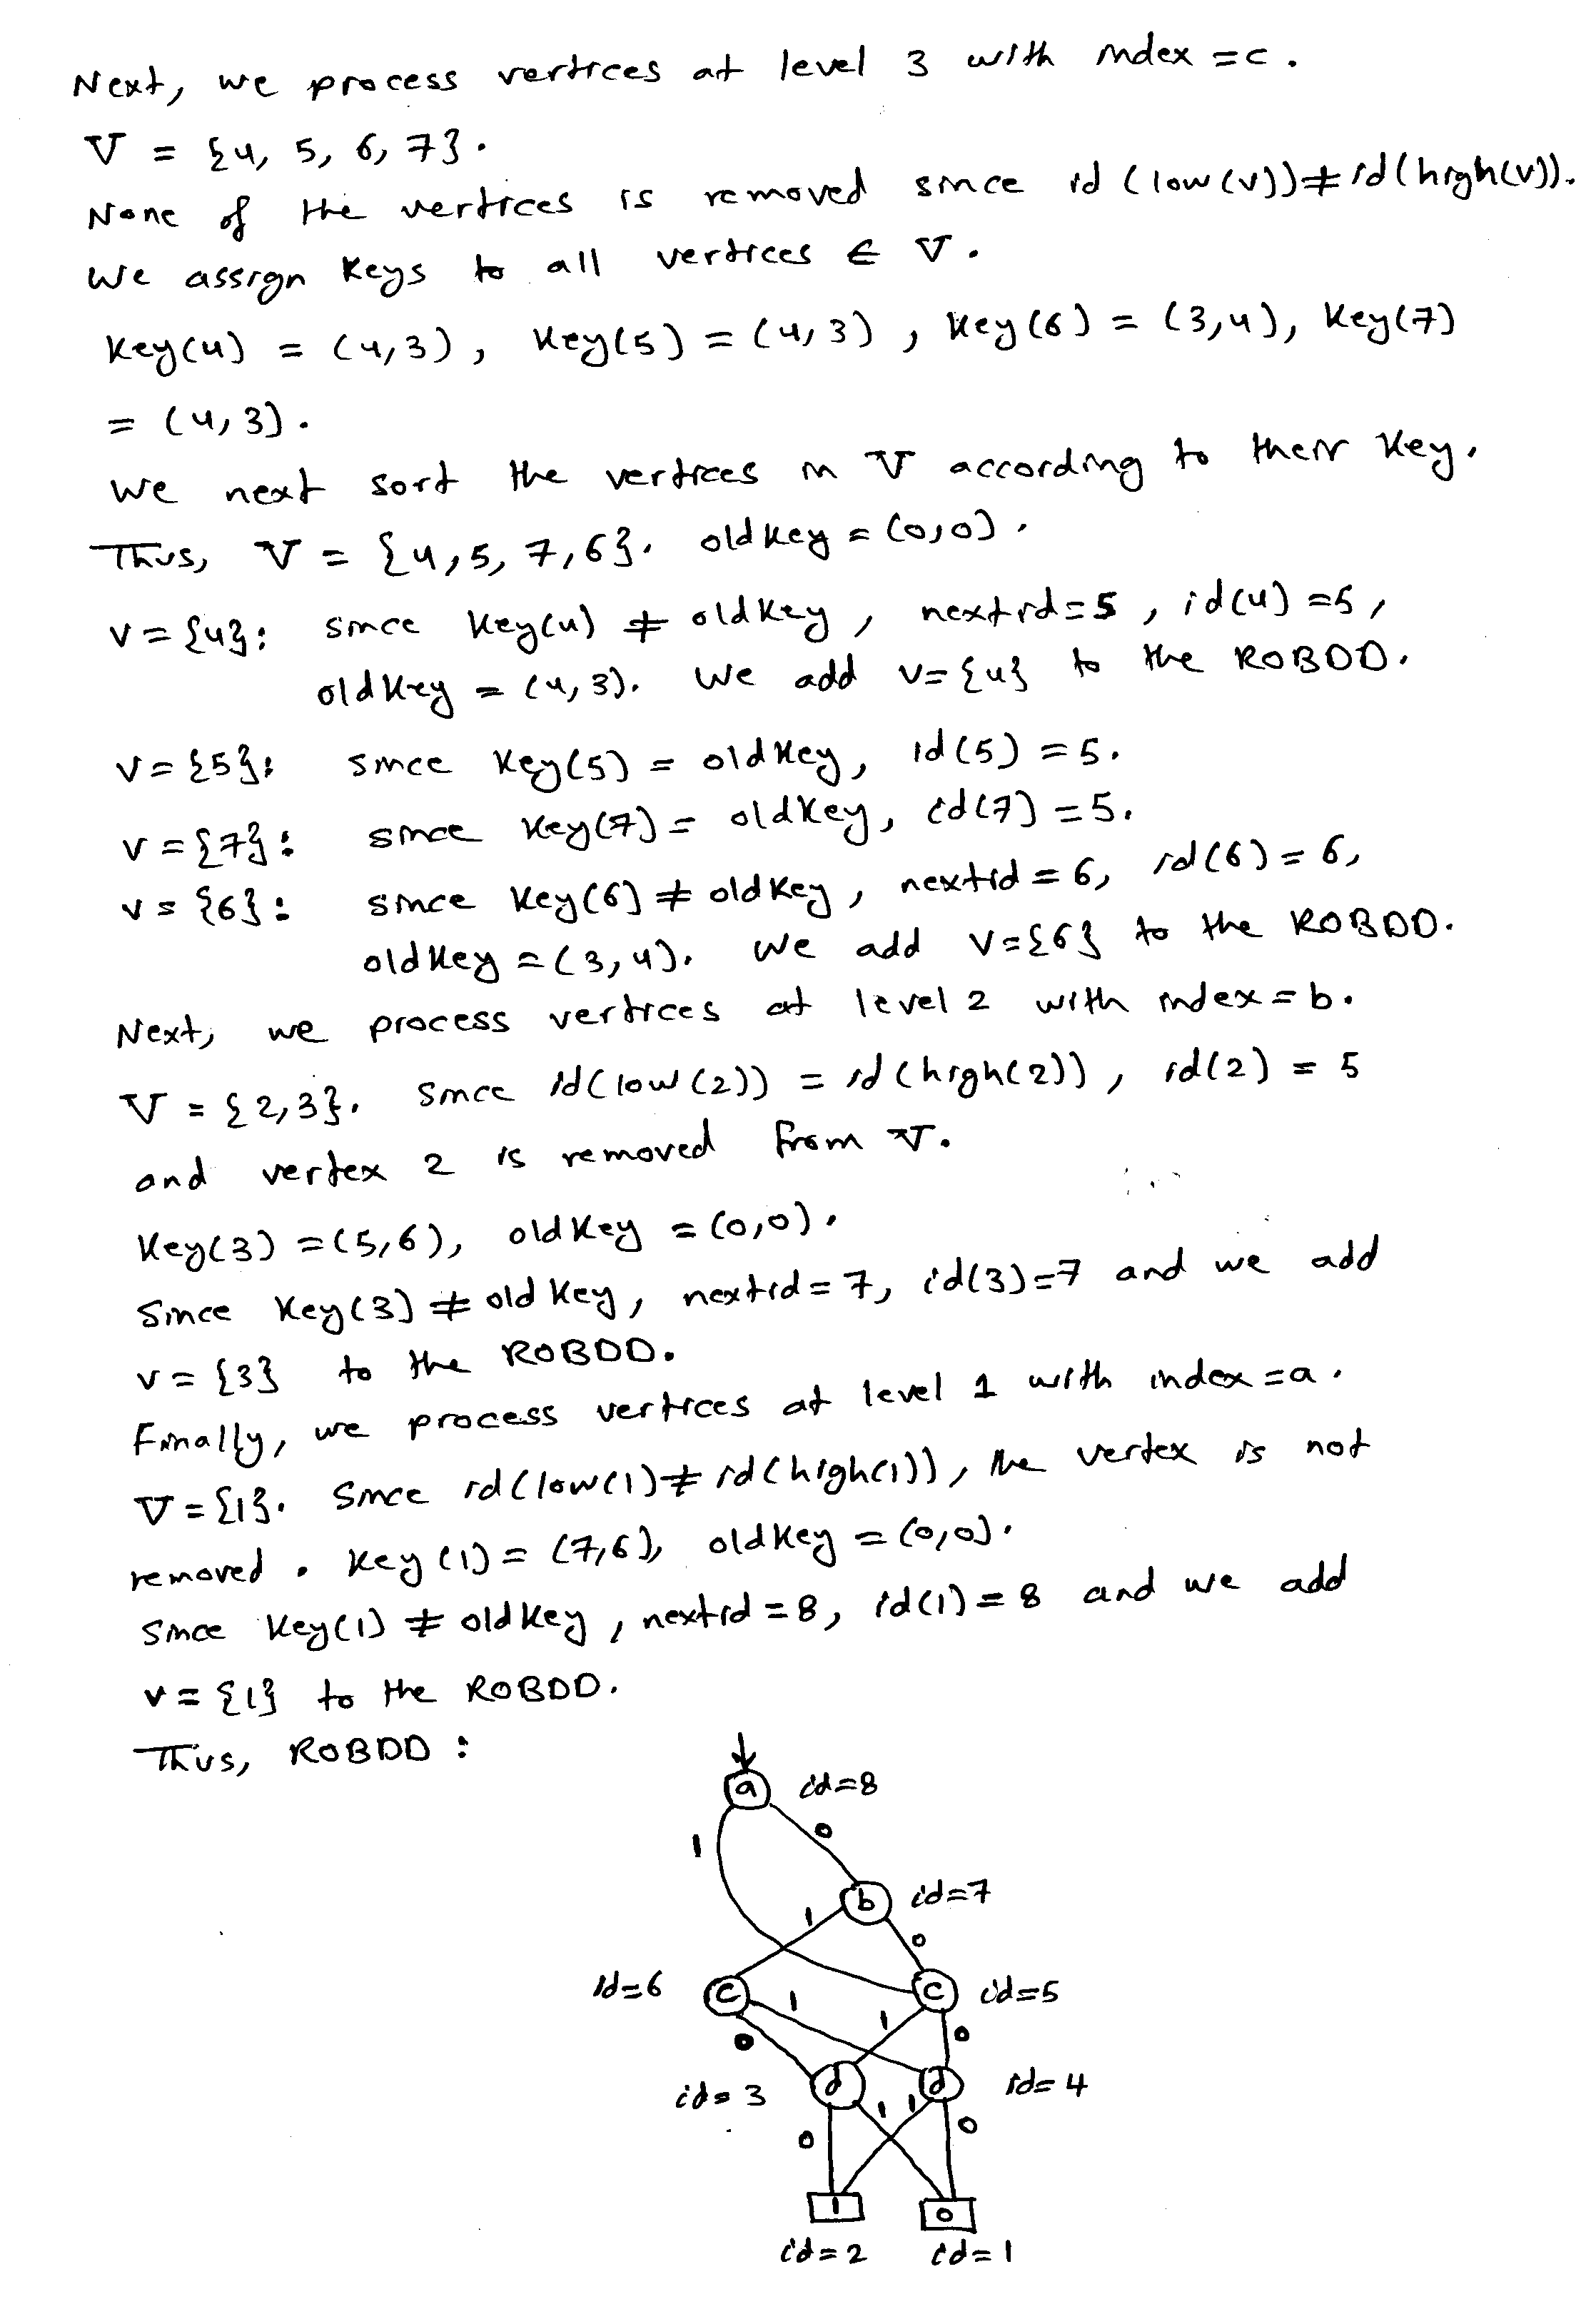 Next, we process vertices at level 3 with index = c.
V = {4, 5, 6, 7}.
None of the vertices is removed since id (low(v)) ≠ id(high(v)).
We assign keys to all vertices ∈ V.
Key(4) = (4,3), Key(5) = (4,3), Key(6) = (3,4), Key(7)
= (4,3).
We next sort the vertices in V according to their key.
Thus, V = {4,5,7,6}. oldkey = (0,0).
v={4}: since Key(4) ≠ oldkey, nextid=5, id(4)=5,
oldkey = (4,3). We add v={4} to the ROBDD.
v={5}: since Key(5) = oldkey, id(5) = 5.
v={7}: since Key(7) = oldkey, id(7) = 5.
v={6}: since Key(6) ≠ oldkey, nextid = 6, id(6) = 6,
oldkey = (3,4). We add v={6} to the ROBDD.
Next, we process vertices at level 2 with index = b.
V = {2,3}. Since id(low(2)) = id(high(2)), id(2) = 5
and vertex 2 is removed from V.
Key(3) = (5,6), oldkey = (0,0).
Since Key(3) ≠ old key, nextid = 7, id(3)=7 and we add
v = {3} to the ROBDD.
Finally, we process vertices at level 1 with index = a.
V = {1}. Since id(low(1) ≠ id(high(1)), the vertex is not
removed. Key(1) = (7,6), oldkey = (0,0).
Since Key(1) ≠ oldkey, nextid = 8, id(1) = 8 and we add
v = {1} to the ROBDD.
Thus, ROBDD :
a id=8
1 0
b id=7
1 0
id=6 c c id=5
1 1
0 0
id=3 d d id=4
1 1
0 0
1 0
id=2 id=1